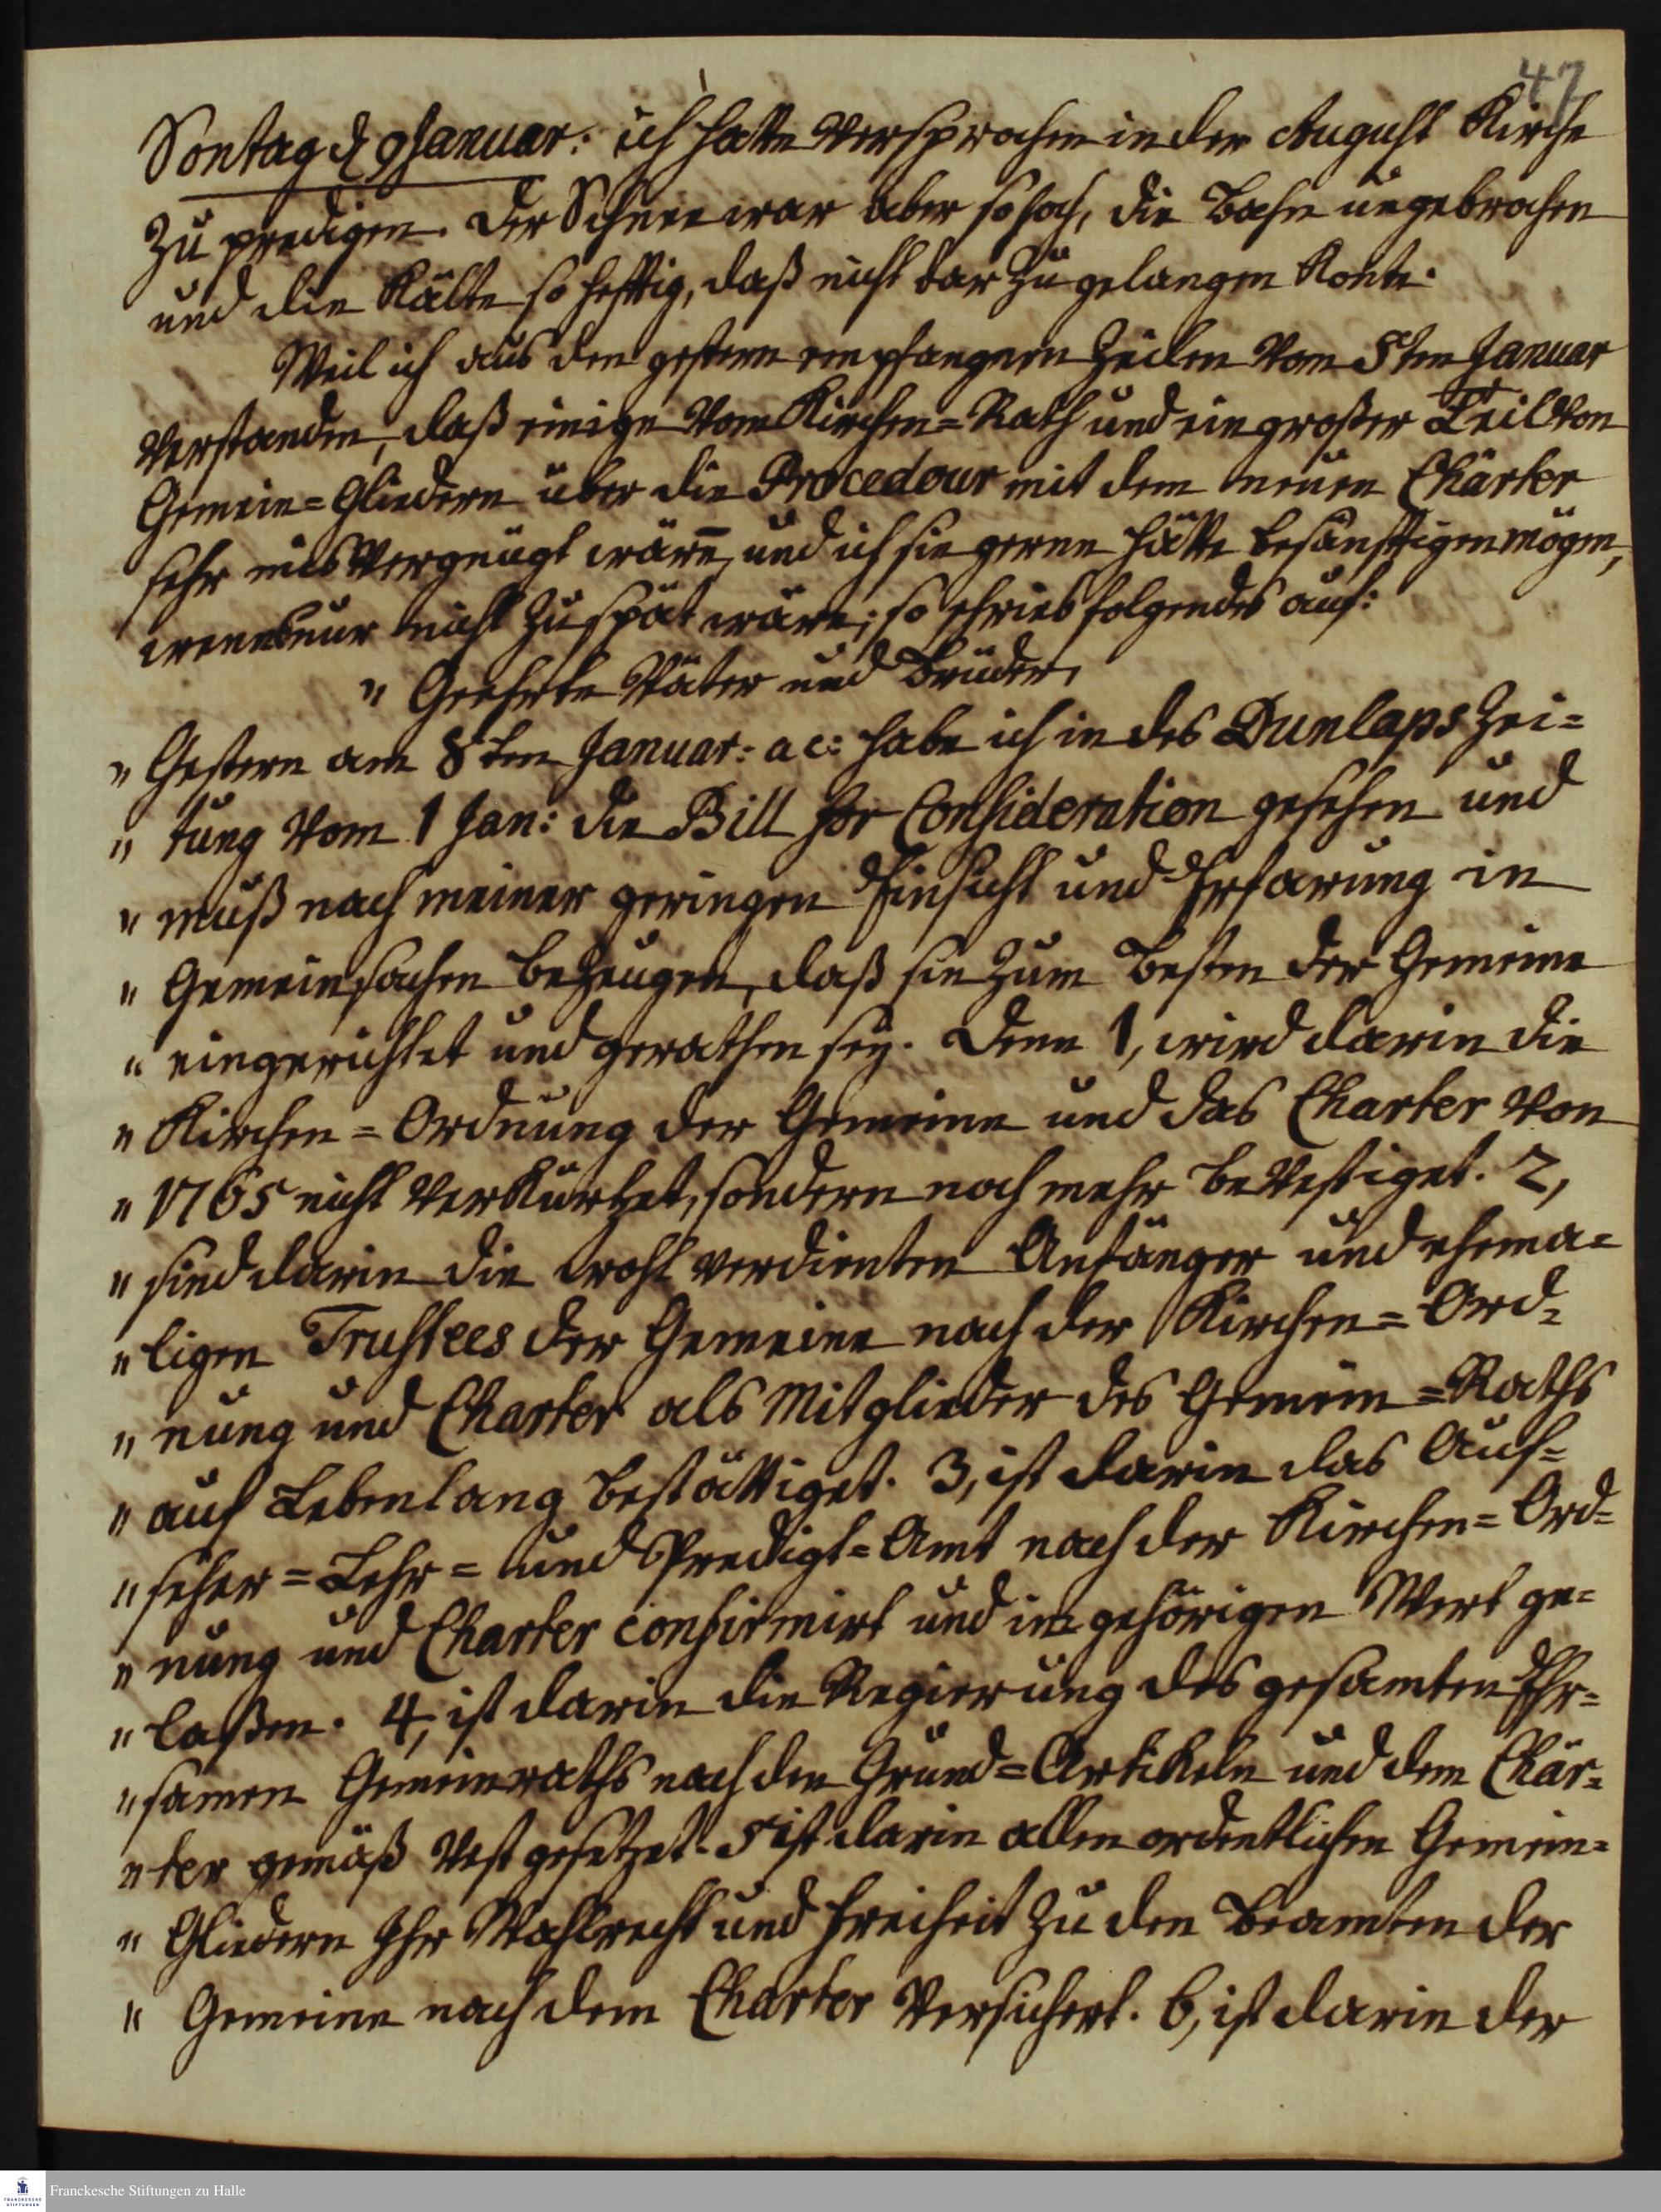 47
Sontag d 9 Januar: ich hatte versprochen in der August Kirche
zu predigen. Der Schnee war aber so hoch, die Bahn ungebrochen
und die Kälte so heftig, daß nicht dar zu gelangen konte.
Weil ich aus den gestern empfangenen Zeilen vom 5ten Januar
verstanden, daß einige vom Kirchen=Rath und ein großer Teil von
Gemein=Gliedern über die Procedour mit dem neuen Chärter
sehr misvergnügt wären, und ich sie gerne hätte besänftigen mögen,
wenes nur nicht zu spät wäre; so schrieb folgendes auf:
" Geehrte Väter und Brüder,
" Gestern am 8ten Januar: a c: habe ich in des Dunlaps Zei=
" tung vom 1 Jan: die Bill for Consideration gesehen und
" muß nach meiner geringen Einsicht und Erfarung in
" Gemeinsachen bezeugen, daß sie zum Besten der Gemeine
" eingerichtet und gerathen sey. Denn 1, wird darin die
" Kirchen=Ordnung der Gemeine und das Charter von
" 1765 nicht verkürtzet, sondern noch mehr bevestiget. 2,
" sind darin die wohl verdienten Anfänger und ehema=
" ligen Trustees der Gemeine nach der Kirchen=Ord=
" nung und Charter als Mitglieder des Gemein=Raths
" auf Lebenlang bestättiget. 3, ist darin das Auf=
" seher=Lehr= und Predigt=Amt nach der Kirchen=Ord=
" nung und Charter confirmirt und im gehörigen Wert ge=
" laßen. 4, ist darin die Regierung des gesamten Ehr=
" samen Gemeinraths nach den Grund=Artikeln und dem Chär=
" ter gemäß vest gesetzet. 5 ist darin allen ordentlichen Gemein=
" Gliedern Ihr Wahlrecht und Freiheit zu den Beamten der
" Gemeine nach dem Charter versichert. 6, ist darin der
FRANCKESCHE STIFTUNGEN
Franckesche Stiftungen zu Halle